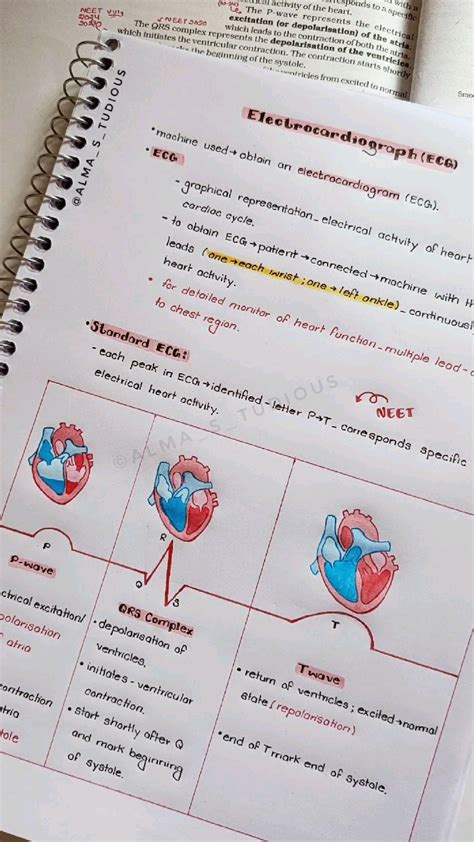 responds to a specific
activity of the heart.
The P-wave represents the electrical
excitation (or depolarisation) of the atria,
which leads to the contraction of both the atria.
The QRS complex represents the depolarisation of the ventricles,
which initiates the ventricular contraction. The contraction starts shortly
the beginning of the systole.
ventricles from excited to normal
NEET
NEET 2020
@ALMA_S_TUDIOUS
Electrocardiograph (ECG)
•machine used→obtain an electrocardiogram (ECG).
•ECG
-graphical representation_electrical activity of heart
cardiac cycle.
-to obtain ECG→patient→connected→machine with
leads (one→each wrist ; one→left ankle)_continuous
heart activity.
• for detailed monitor of heart function_multiple lead
to chest region.
•Standard ECG:
-each peak in ECG→identified-letter P→T_corresponds specific
electrical heart activity.
NEET
©ALMA_S_TUDIOUS
P
R
Q
S
T
P-wave
excitation/
atria
QRS Complex
•depolarisation of
ventricles.
•initiates-ventricular
contraction.
•start shortly after Q
and mark beginning
of systole.
Twave
•return of ventricles ; excited→normal
state (repolarisation)
•end of T mark end of systole.